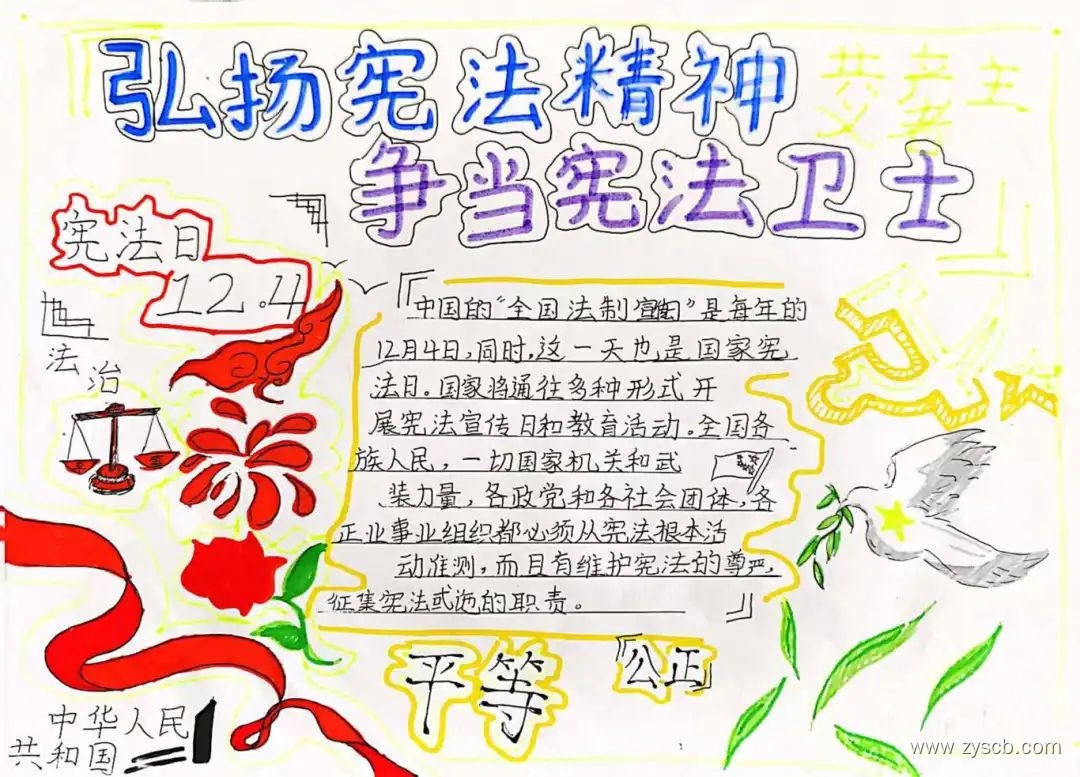 弘扬宪法精神
争当宪法卫士
共产主
义
宪法日
12.4
法治
中国的“全国法制宣传日”是每年的
12月4日,同时,这一天也是国家宪
法日。国家将通往多种形式开
展宪法宣传日和教育活动。全国各
族人民,一切国家机关和武
装力量,各政党和各社会团体,各
正业事业组织都必须从宪法根本活
动准测,而且有维护宪法的尊严,
征集宪法或迤的职责。
平等
公正
中华人民
共和国
www.zyscb.com